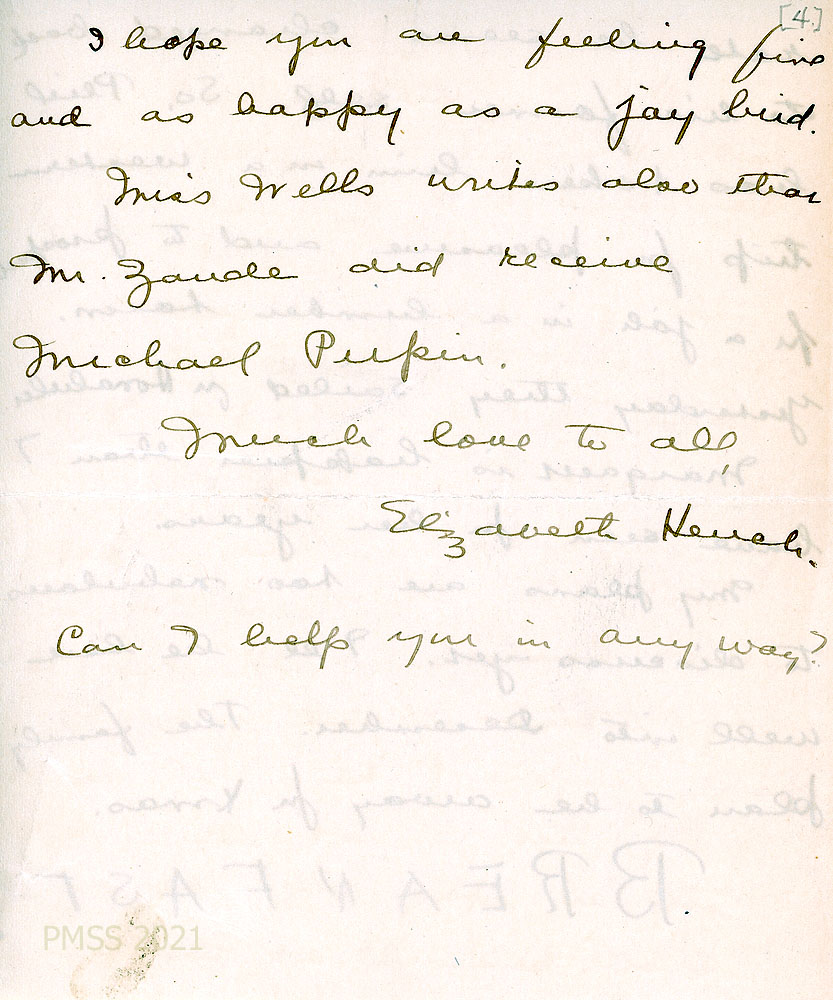 [4.]
I hope you are feeling fine
and as happy as a jay bird.
Miss Wells writes also that
Mr. Zande did receive
Michael Pupin.
Much love to all,
Elizabeth Hench.
Can I help you in any way?
PMSS 2021